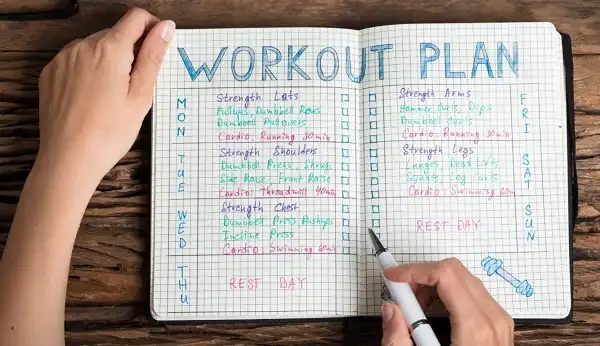 WORKOUT PLAN
MON
Strength Lats
Pullups, Dumbbell Rows
Dumbbell Pullovers
Cardio: Running 30min
TUE
Strength Shoulders
Dumbbell Press, Shrugs
Side Raise, Front Raise
Cardio: Threadmill 40min
WED
Strength Chest
Dumbbell Press Pushups
Incline Press
Cardio: Swimming 60min
THU
REST DAY
Strength Arms
Hammer Curls, Dips
Dumbell Curls
Cardio: Running 30min
FRI
Strength Legs
Lunges Dead Lifts
Squats Leg Curls
Cardio: Swimming 60m
SAT
REST DAY
SUN